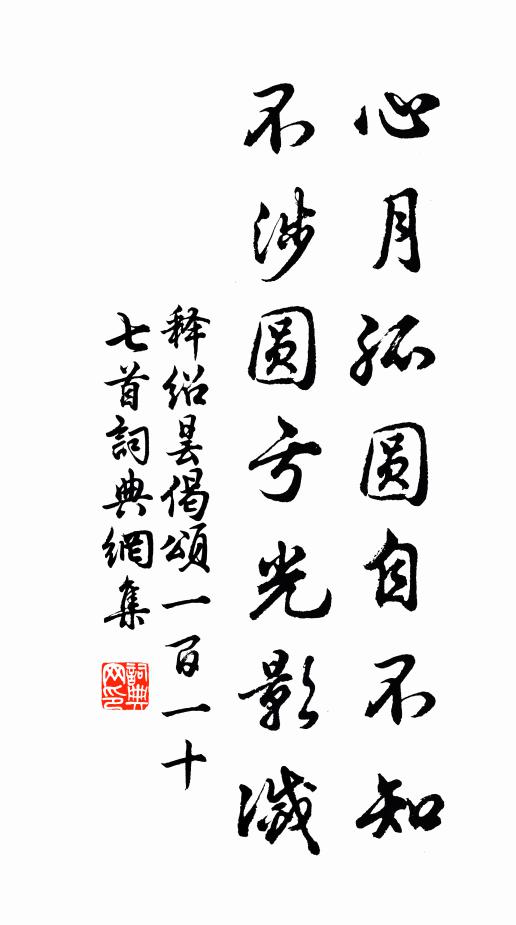 心月孤圆自不知
不涉圆亏光影滅
释绍昙偈頌一百一十
七首詞典網集
詞典网印